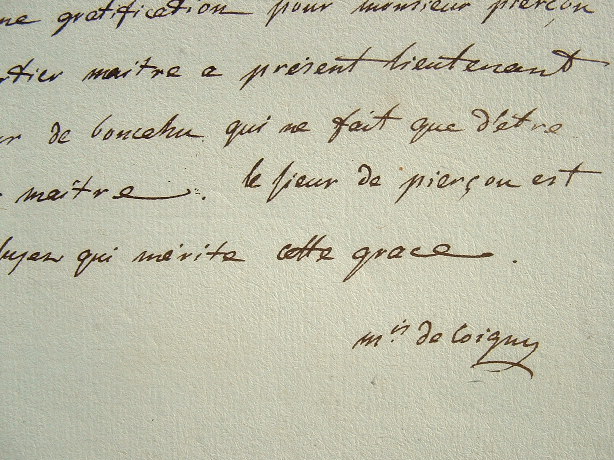 ne gratification pour monsieur pierçon
rtier maitre a présent lieutenant
ur de qui ne fait que d'être
maître. le sieur de pierçon est
qui mérite cette grace.
m.is de Coigny